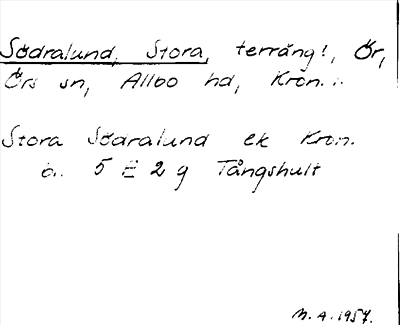 Södralund, Stora, terräng!, Ör,
Örs sn, Allbo hd, Kron. l.
Stora Södralund ek Kron.
bl. 5 E 2 g Tångshult
M. A. 1957.